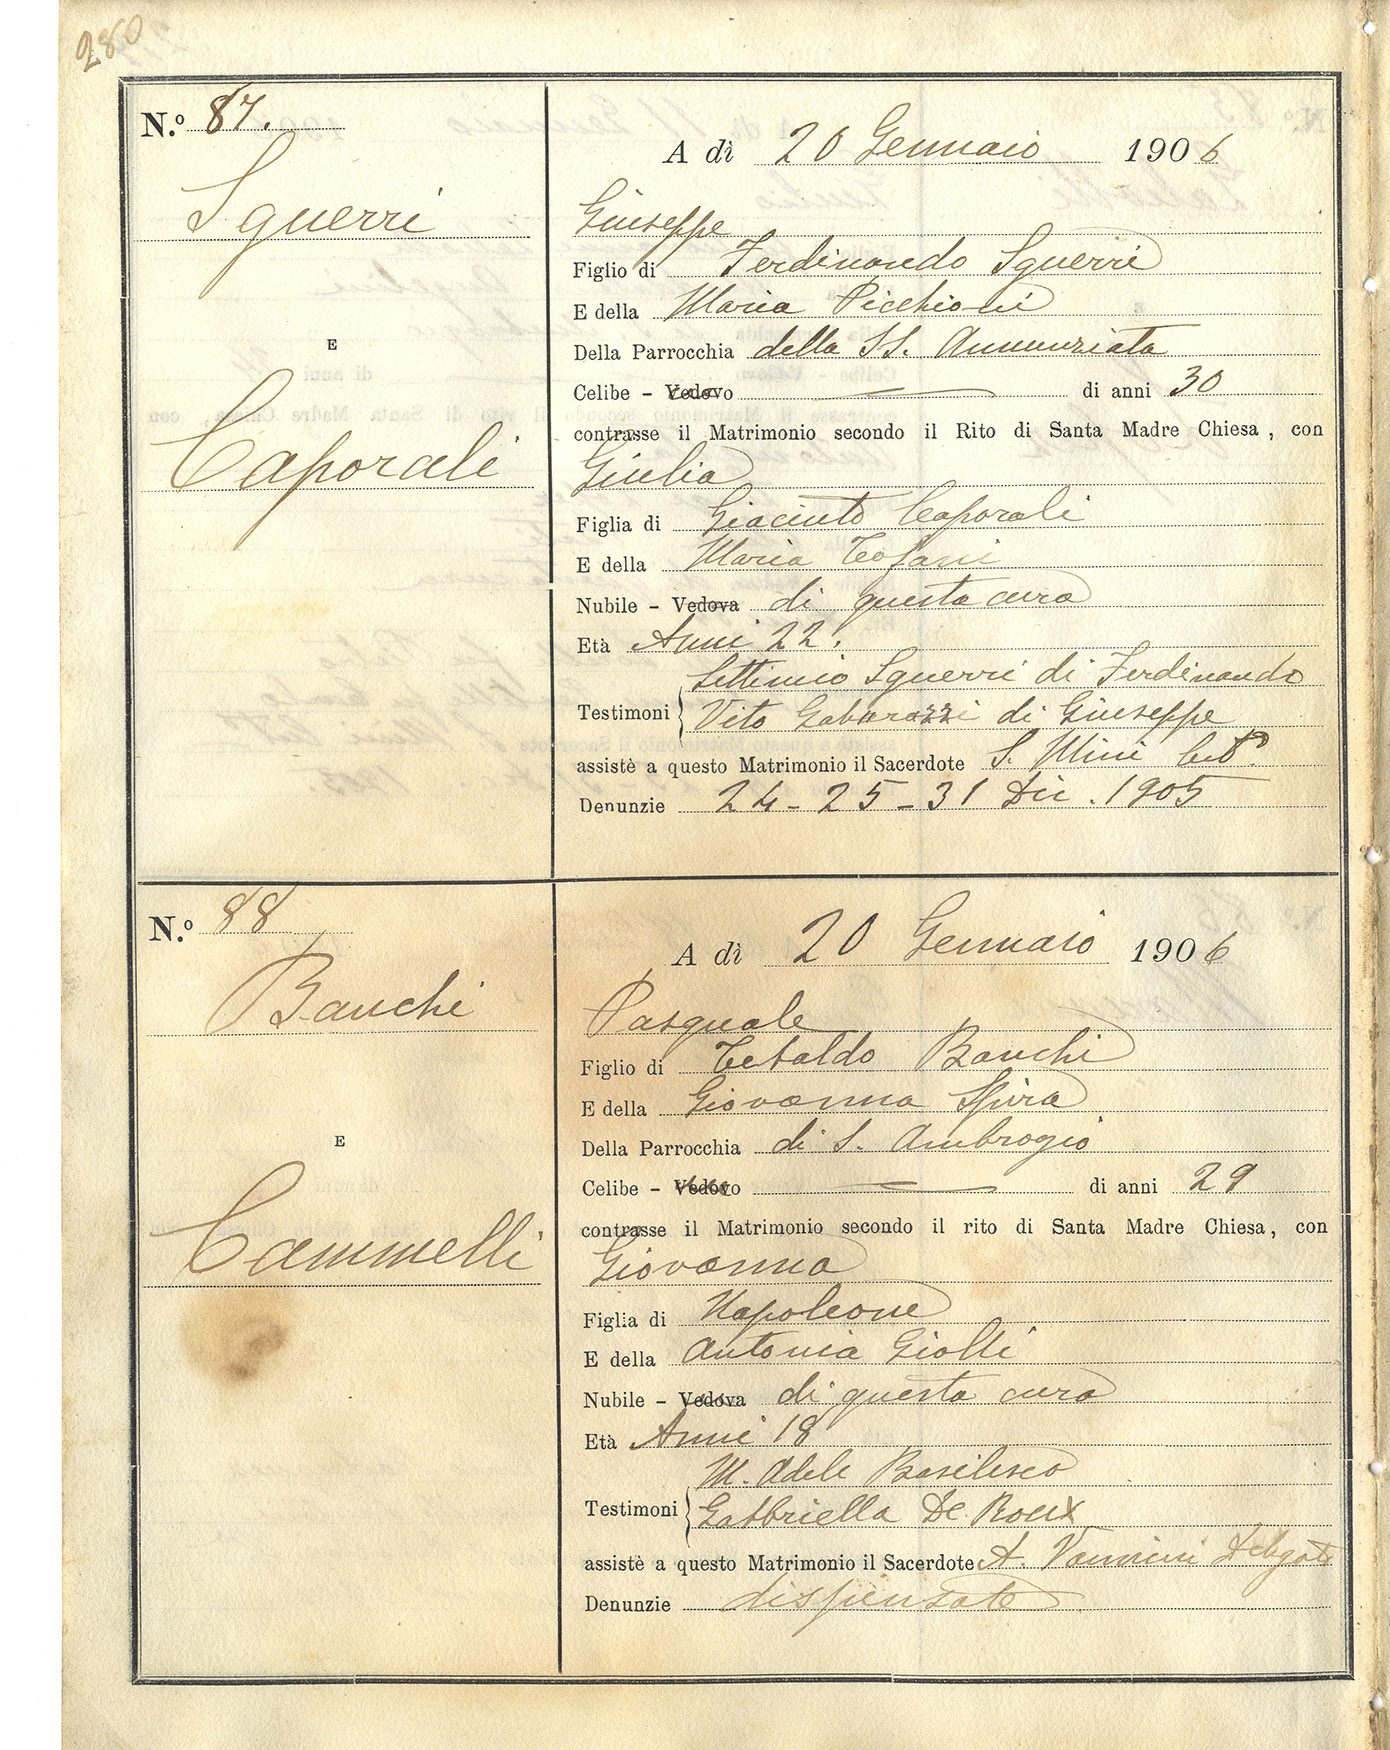 280
N.º 87.
Sguerri
E
Caporali
A dì 20 Gennaio 1906
Giuseppe
Figlio di Ferdinando Sguerri
E della Maria Picchioni
Della Parrocchia della SS. Annunziata
Celibe - Vedovo di anni 30
contrasse il Matrimonio secondo il Rito di Santa Madre Chiesa, con
Giulia
Figlia di Giacinto Caporali
E della Maria Tofani
Nubile - Vedova di questa cura
Età Anni 22.
Testimoni Settimio Sguerri di Ferdinando
Vito di Giuseppe
assistè a questo Matrimonio il Sacerdote S. Mini
Denunzie 24 - 25 - 31 Dic. 1905
N.º 88
Banchi
E
Cammelli
A dì 20 Gennaio 1906
Pasquale
Figlio di Tebaldo Banchi
E della Giovanna
Della Parrocchia di S. Ambrogio
Celibe - Vedovo di anni 29
contrasse il Matrimonio secondo il rito di Santa Madre Chiesa, con
Giovanna
Figlia di Napoleone
E della Antonia Giolli
Nubile - Vedova di questa cura
Età Anni 18
M. Adele Basilesco
Testimoni Gabbriella De Roux
assistè a questo Matrimonio il Sacerdote A. Vannini
Denunzie dispensate